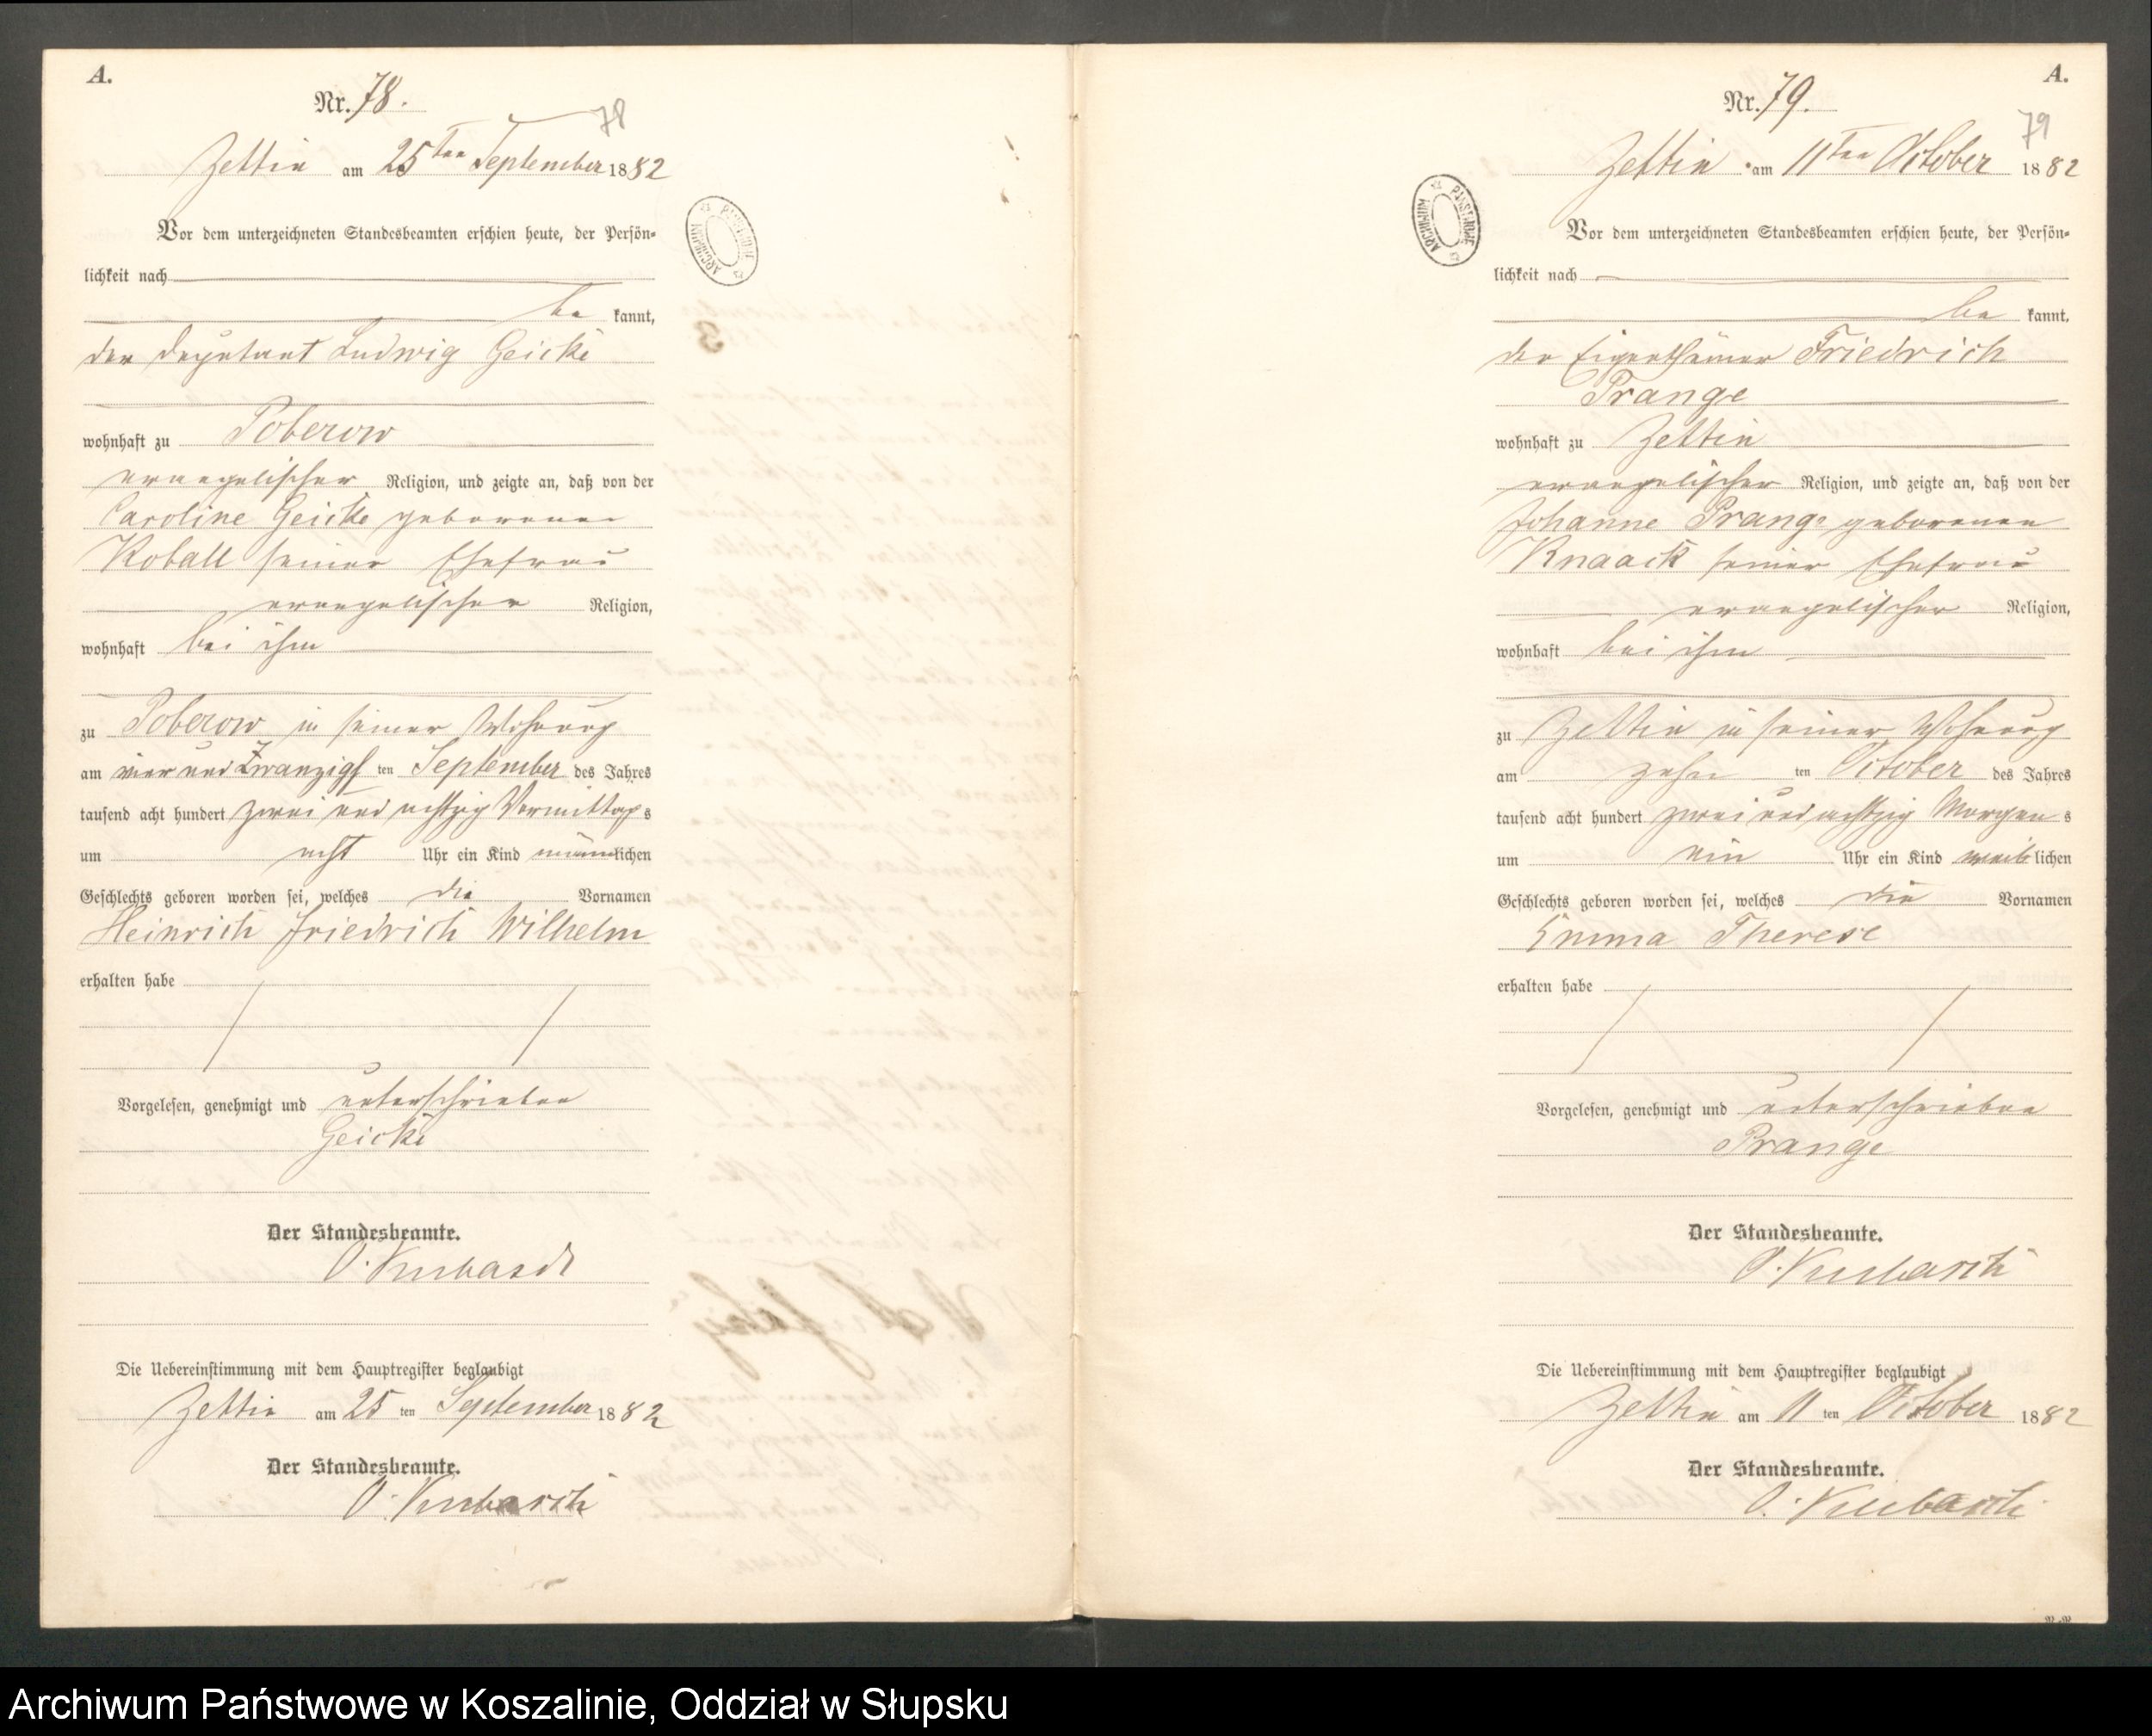 A.
Nr. 78.
78
Zettin am 25ten September 1882
Vor dem unterzeichneten Standesbeamten erschien heute, der Persön-
lichkeit nach
be kannt,
der Deputant Ludwig Geicke
wohnhaft zu Poberow
evangelischer Religion, und zeigte an, daß von der
Caroline Geicke geborenen
Koball seiner Ehefrau
evangelischer Religion,
wohnhaft bei ihm
zu Poberow in seiner Wohnung
am vier und Zwanzigst ten September des Jahres
tausend acht hundert zwei und achtzig Vormittags
um acht Uhr ein Kind männlichen
Geschlechts geboren worden sei, welches die Vornamen
Heinrich Friedrich Wilhelm
erhalten habe
Vorgelesen, genehmigt und unterschrieben
Geicke
Der Standesbeamte.
Die Uebereinstimmung mit dem Hauptregister beglaubigt
Zettin am 25 ten September 1882
Der Standesbeamte.
ARCHIWUM PAŃSTWOWE
A.
Nr. 79.
79
Zettin am 11ten October 1882
ARCHIWUM PAŃSTWOWE
Vor dem unterzeichneten Standesbeamten erschien heute, der Persön-
lichkeit nach
be kannt,
der Eigenthümer Friedrich
Prange
wohnhaft zu Zettin
evangelischer Religion, und zeigte an, daß von der
Johanne Prange geborenen
Knaack seiner Ehefrau
evangelischer Religion,
wohnhaft bei ihm
zu Zettin in seiner Wohnung
am zehn ten October des Jahres
tausend acht hundert zwei und achtzig Morgens
um ein Uhr ein Kind weiblichen
Geschlechts geboren worden sei, welches die Vornamen
Emma Therese
erhalten habe
Vorgelesen, genehmigt und unterschrieben
Prange
Der Standesbeamte.
Die Uebereinstimmung mit dem Hauptregister beglaubigt
Zettin am 11 ten October 1882
Der Standesbeamte.
Archiwum Państwowe w Koszalinie, Oddział w Słupsku